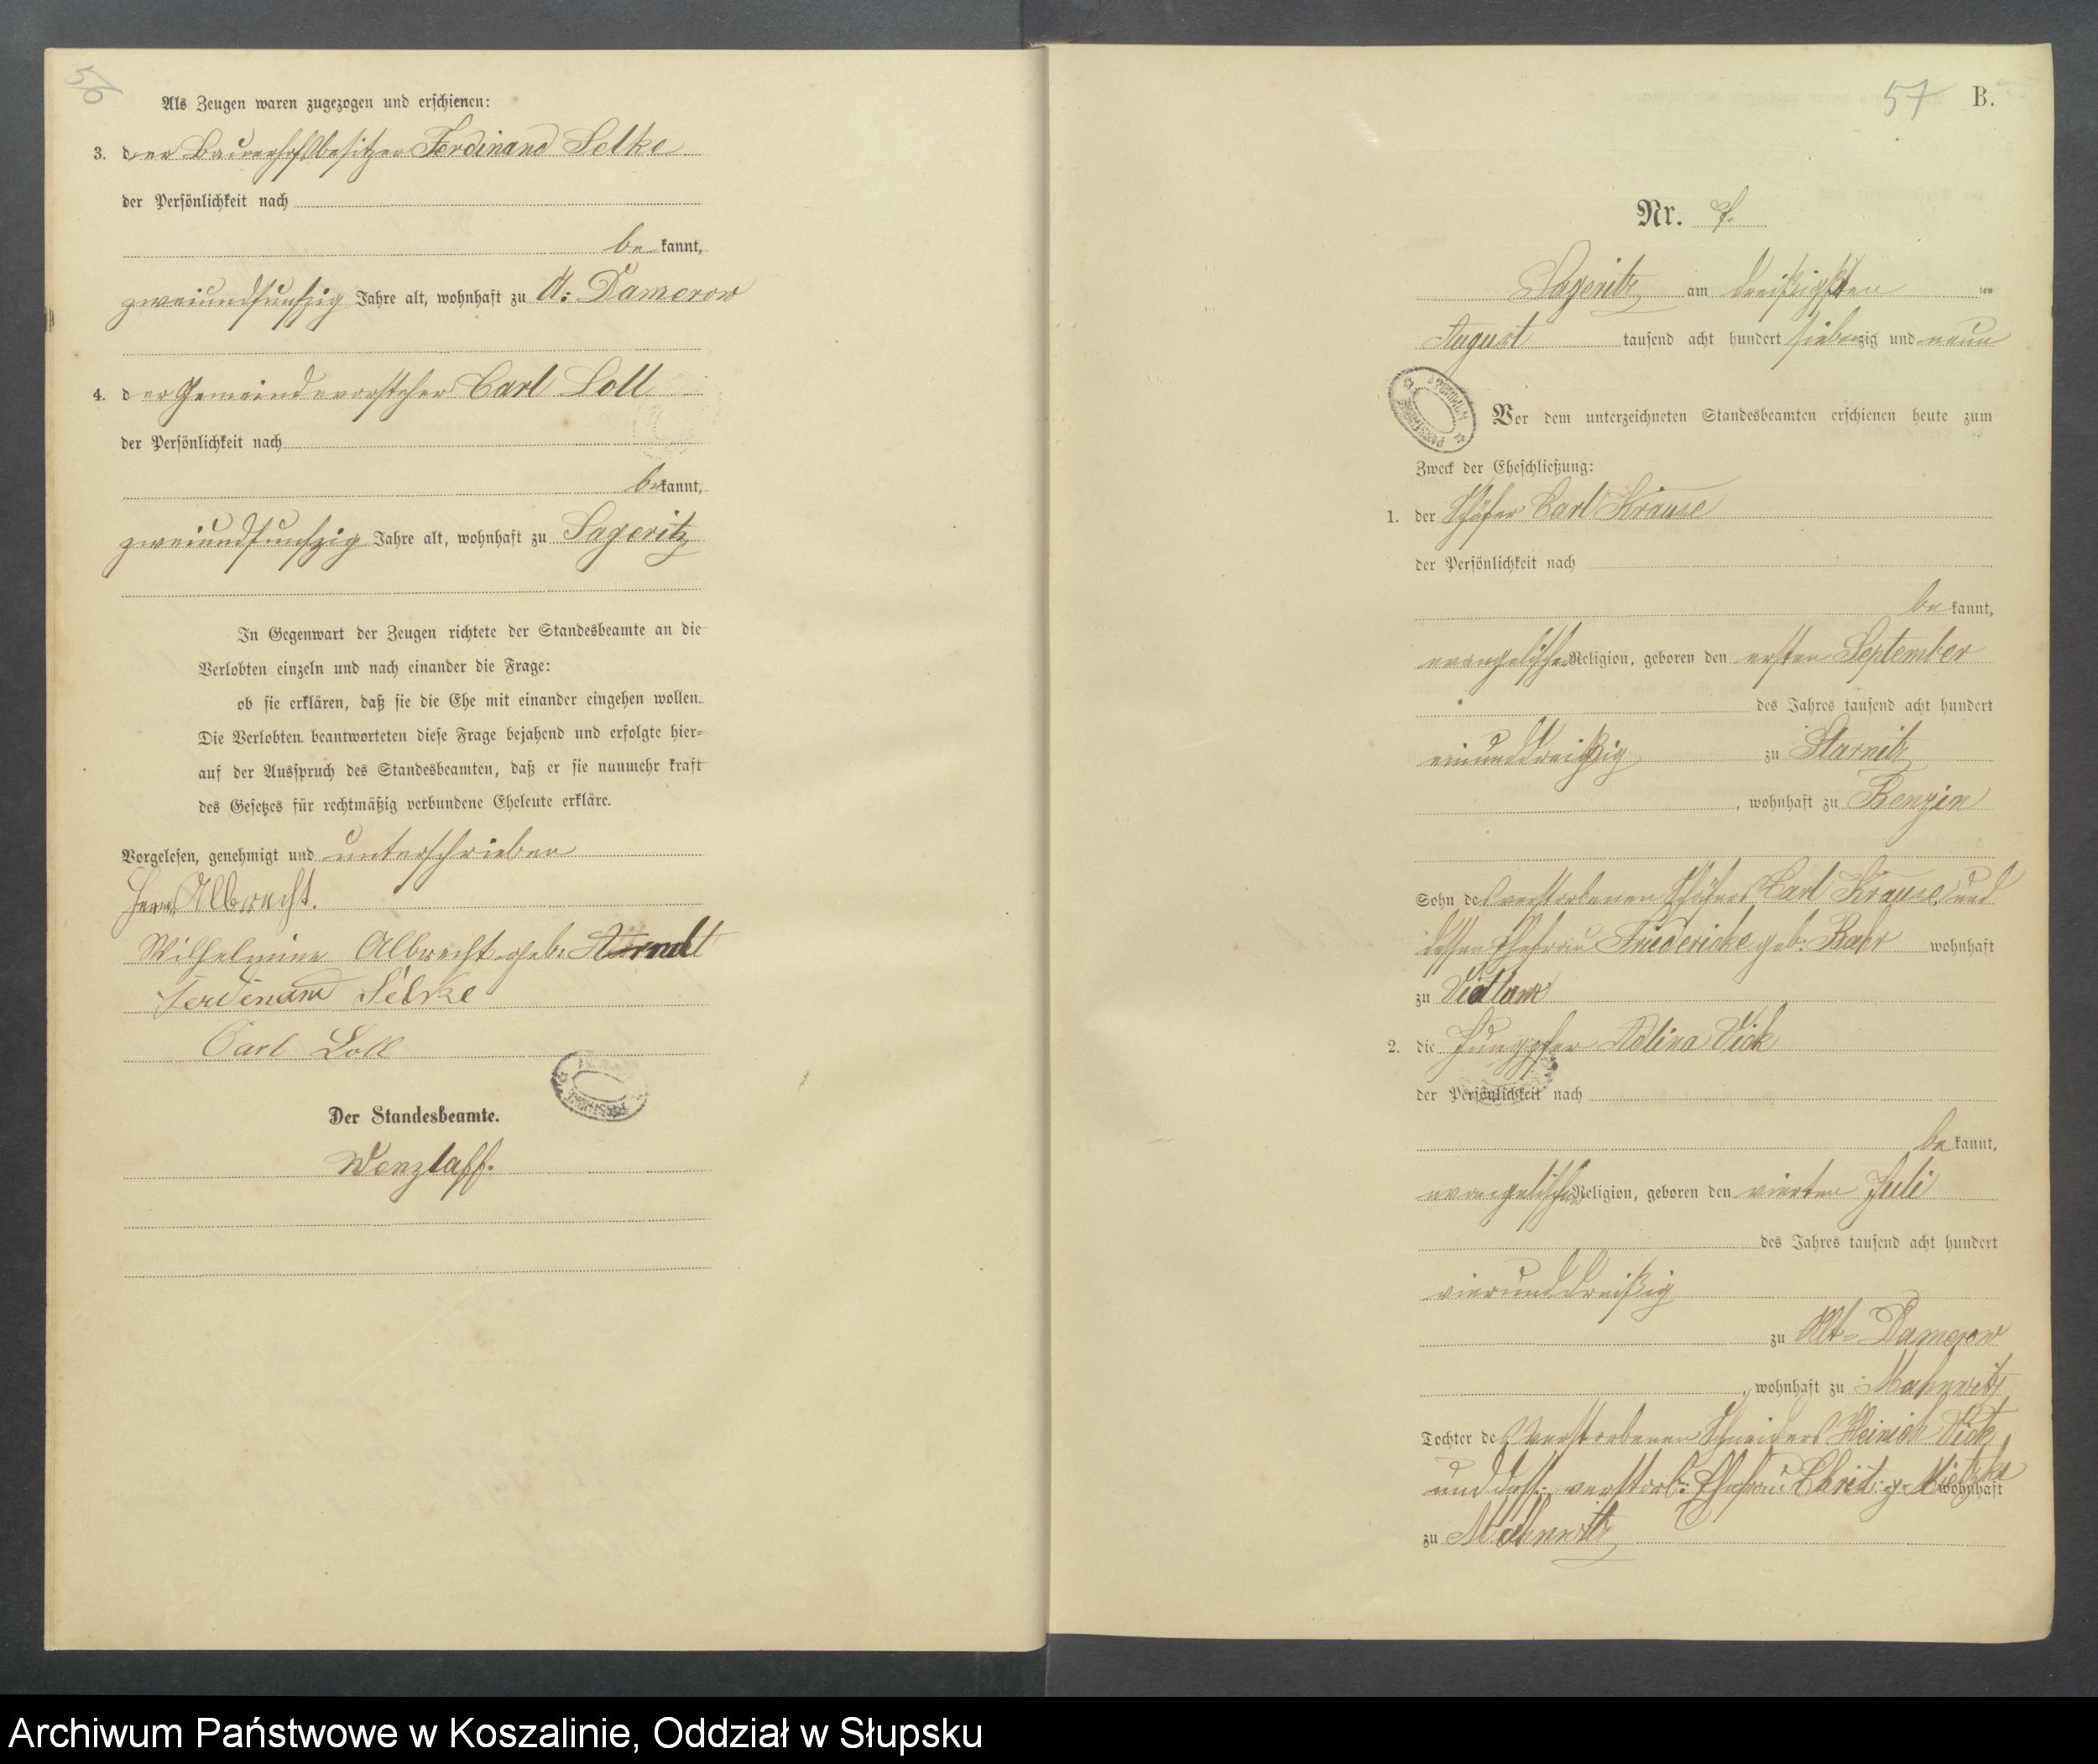 56
Als Zeugen waren zugezogen und erschienen:
3. der Bauerhofsbesitzer Ferdinand Selke
der Persönlichkeit nach
be kannt,
zweiundfunfzig Jahre alt, wohnhaft zu A: Damerow
4. der Gemeindevorsteher Carl Loll
der Persönlichkeit nach
be kannt,
zweiundfunfzig Jahre alt, wohnhaft zu Sageritz
In Gegenwart der Zeugen richtete der Standesbeamte an die
Verlobten einzeln und nach einander die Frage:
ob sie erklären, daß sie die Ehe mit einander eingehen wollen.
Die Verlobten beantworteten diese Frage bejahend und erfolgte hier-
auf der Ausspruch des Standesbeamten, daß er sie nunmehr kraft
des Gesetzes für rechtmäßig verbundene Eheleute erkläre.
Vorgelesen, genehmigt und unterschrieben
Herm. Albrecht.
Wilhelmine Albrecht geb: Arndt
Ferdinand Selke
Carl Loll
Der Standesbeamte.
Wenzlaff.
57 B.
Nr. 7.
Sageritz am dreißigsten ten
August tausend acht hundert siebenzig und neun
Vor dem unterzeichneten Standesbeamten erschienen heute zum
Zweck der Eheschließung:
1. der Schäfer Carl Krause
der Persönlichkeit nach
be kannt,
evangelischer Religion, geboren den ersten September
des Jahres tausend acht hundert
einunddreißig zu Starnitz
, wohnhaft zu Benzin
Sohn des verstorbenen Schäfers Carl Krause und
dessen Ehefrau Friedericke geb: Bahr wohnhaft
zu
2. die Jungfer Adlina Vick
der Persönlichkeit nach
be kannt,
evangelischer Religion, geboren den vierten Juli
des Jahres tausend acht hundert
vierunddreißig
zu Alt-Damerow
, wohnhaft zu Mahnwitz
Tochter des verstorbenen Schneiders Heinich Vick
und dess: verstorb: Ehefrau Christ: g. Mietzke wohnhaft
zu Mahnwitz
Archiwum Państwowe w Koszalinie, Oddział w Słupsku